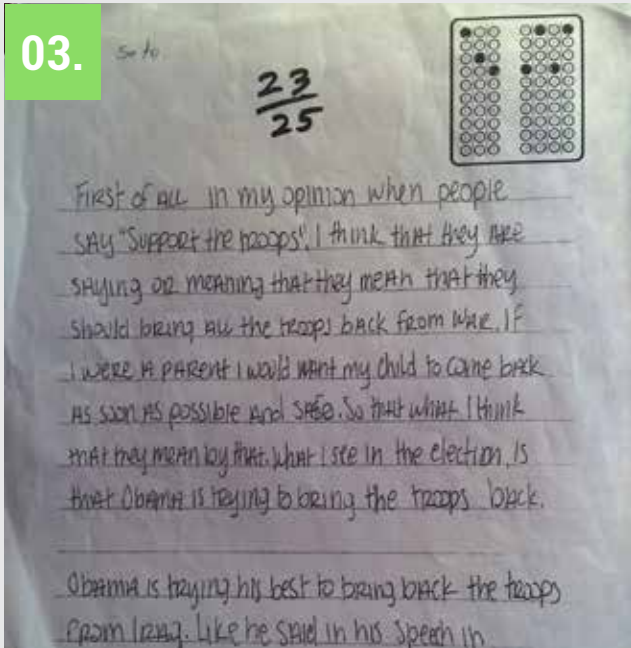 03.
so to
23
25
First of all in my opinion when people
say "Support the troops", I think that they are
saying or meaning that they mean that they
should bring all the troops back from war. If
I were a parent I would want my child to come back
as soon as possible and safe. So that what I think
that they mean by that. What I see in the election, is
that Obama is trying to bring the troops back.
Obama is trying his best to bring back the troops
from Iraq. Like he said in his speech in